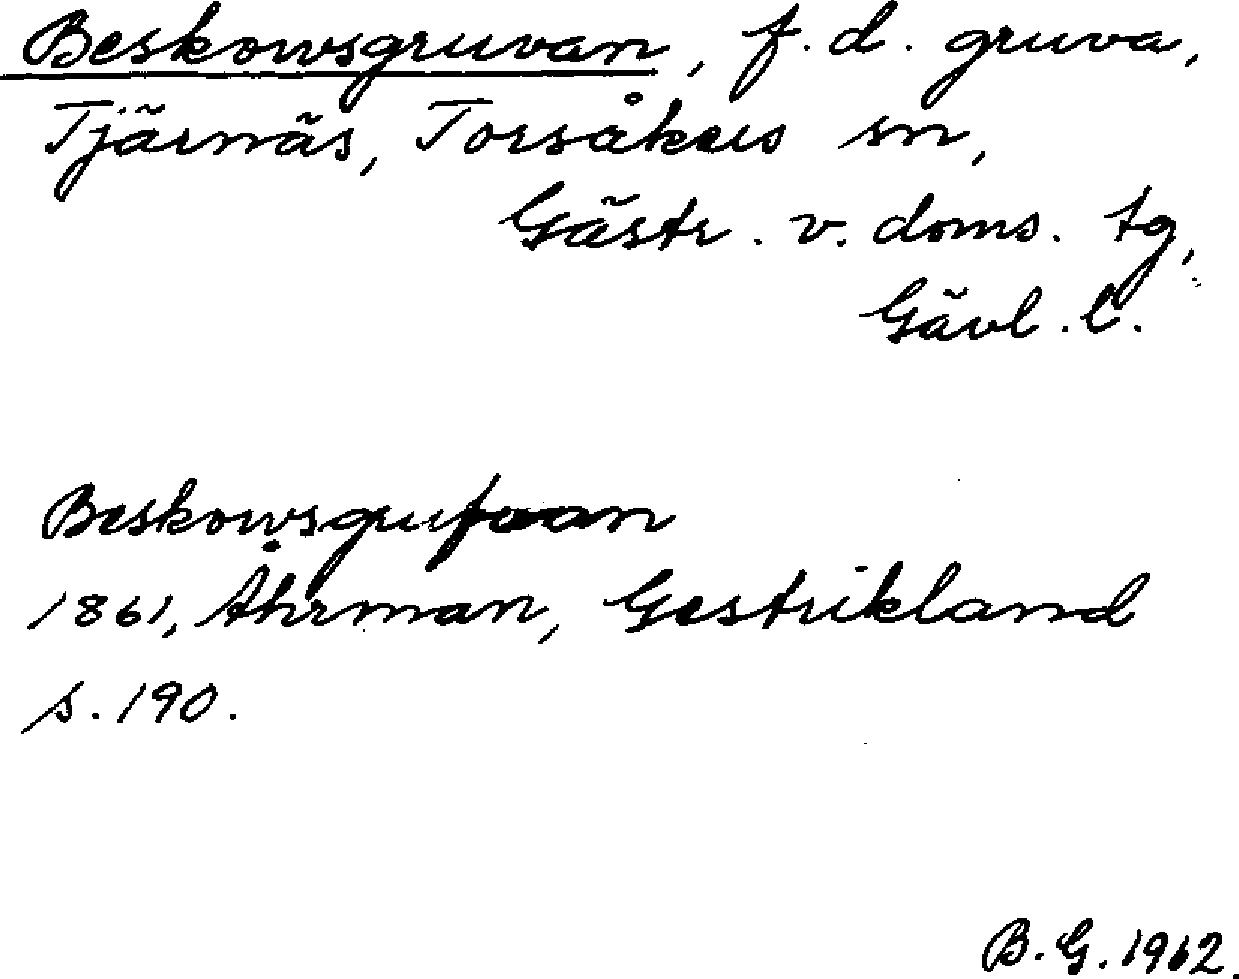 Beskowsgruvan, f.d. gruva,
Tjärnäs, Torsåkers sn,
Gästr. v. doms. tg,
Gävl. l.
Beskowsgrufvan
1861, Åhrman, Gestrikland
s. 190.
B.G. 1962.